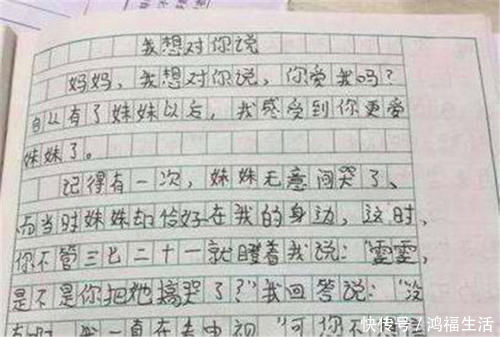 我想对你说
妈妈，我想对你说，你爱我吗？
自从有了妹妹以后，我感受到你更爱
妹妹了。
记得有一次，妹妹无意间哭了、
而当时妹妹却恰好在我的身边，这时，
你不管三七二十一就瞪着我说：“雯雯，
是不是你把她搞哭了？”我回答说：“没
我一直在看电视”可你不
快传号/鸿福生活